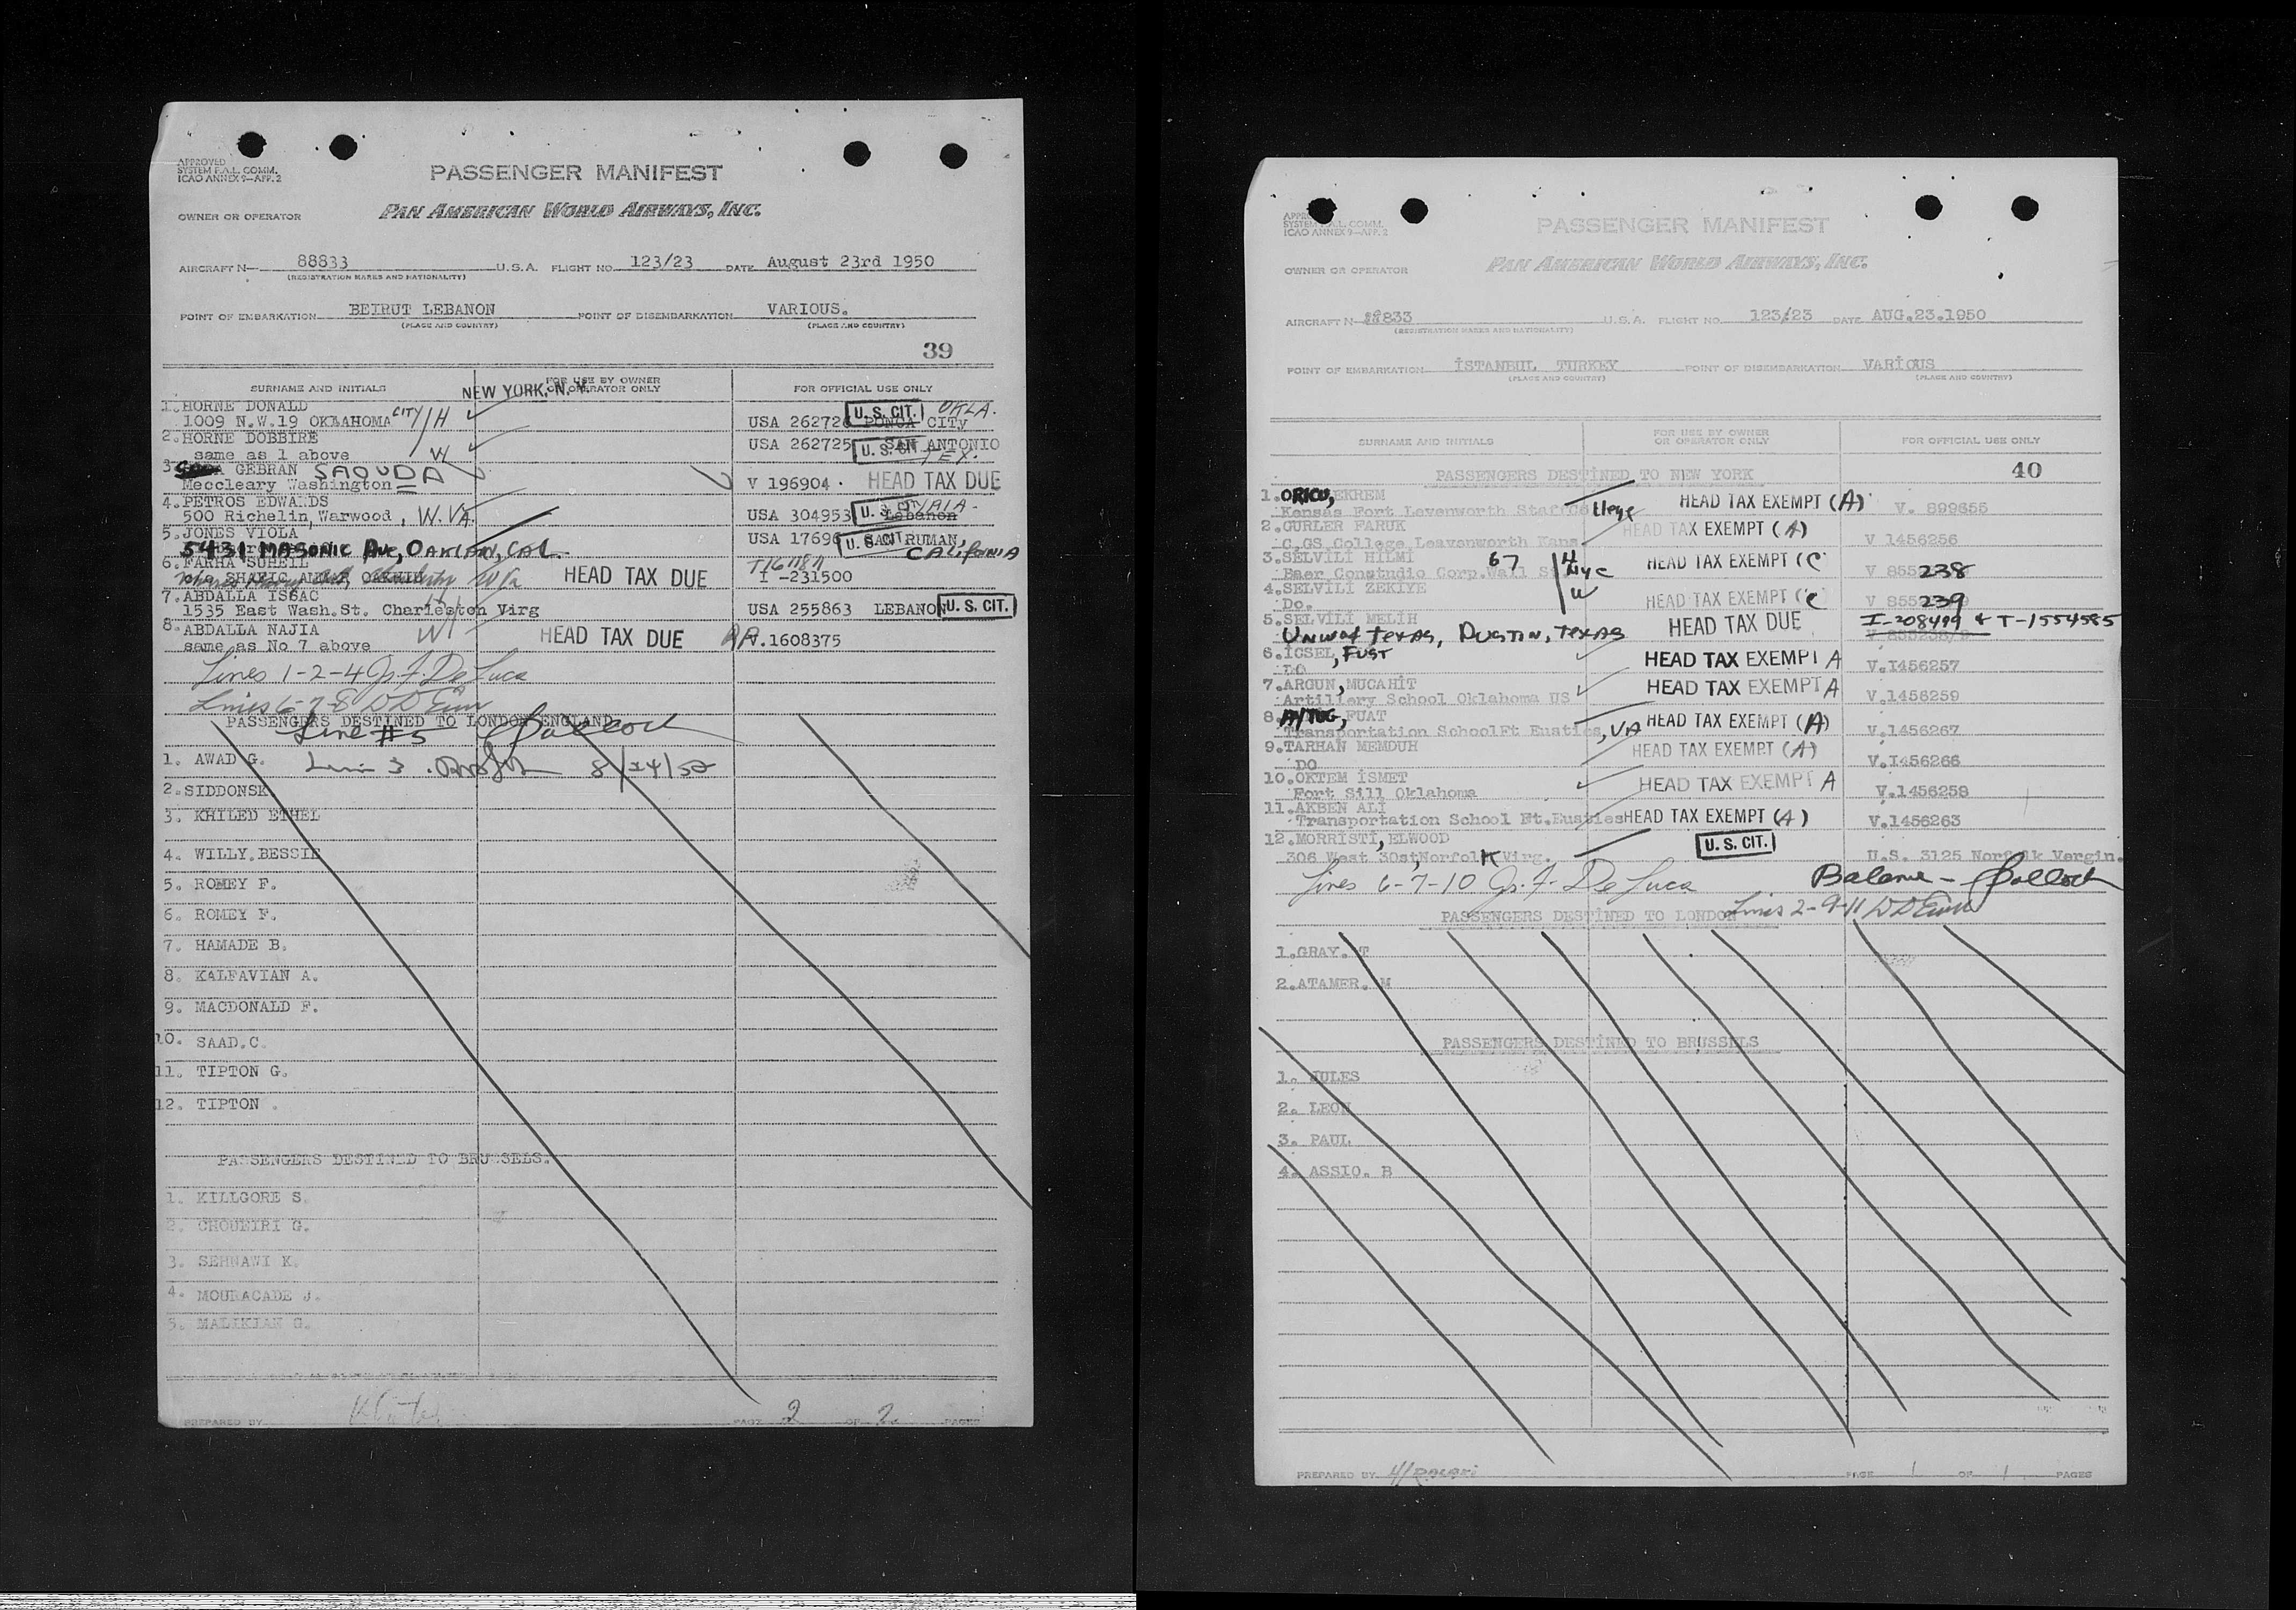 APPROVED
SYSTEM F.A.L. COMM.
ICAO ANNEX 9—APP. 2
PASSENGER MANIFEST
OWNER OR OPERATOR PAN AMERICAN WORLD AIRWAYS, INC.
AIRCRAFT N— 88833 U.S.A. FLIGHT NO. 123/23 DATE August 23rd 1950
(REGISTRATION MARKS AND NATIONALITY)
POINT OF EMBARKATION BEIRUT LEBANON POINT OF DISEMBARKATION VARIOUS.
(PLACE AND COUNTRY) (PLACE AND COUNTRY)
39
SURNAME AND INITIALS FOR USE BY OWNER OR OPERATOR ONLY FOR OFFICIAL USE ONLY
NEW YORK, N.Y.
1. HORNE DONALD
1009 N.W.19 OKLAHOMA CITY H USA 262726 PONCA CITY U. S. CIT. OKLA.
2. HORNE DOBBIRE USA 262725 SAN ANTONIO
same as 1 above W U. S. CIT TEX.
3. GEBRAN SAOUDA
Meccleary Washington V 196904 . HEAD TAX DUE
4. PETROS EDWARDS
500 Richelin, Warwood, W. VA. USA 304953 Lebanon U. S.
5. JONES VIOLA USA 17696 SAN TRUMAN, U. S. CIT
5431 MASONIC AVE, OAKLAN, CAL. CALIFONIA
6. FARHA SUHEIL
c/o SHAFIC W Va HEAD TAX DUE I -231500
7. ABDALLA ISSAC
1535 East Wash.St. Charleston Virg H USA 255863 LEBANON U. S. CIT.
8. ABDALLA NAJIA
same as No 7 above W HEAD TAX DUE .1608375
Lines 1-2-4 Jr. F. De Luca
Lines 6-7-8
PASSENGERS DESTINED TO LONDON ENGLAND
Line #5
1. AWAD G. Line 3 8/24/50
2. SIDDONSK
3. KHILED ETHEL
4. WILLY.BESSIE
5. ROMEY F.
6. ROMEY F.
7. HAMADE B.
8. KALFAVIAN A.
9. MACDONALD F.
10. SAAD.C.
11. TIPTON G.
12. TIPTON .
PASSENGERS DESTINED TO BRUSSELS.
1. KILLGORE S.
2. CHOUEIRI G.
3. SEHNAWI K.
4. MOURACADE J.
5. MALIKIAN G.
PREPARED BY PAGE 2 OF 2 PAGES
SYSTEM F.A.L. COMM.
ICAO ANNEX 9—APP. 2
PASSENGER MANIFEST
OWNER OR OPERATOR PAN AMERICAN WORLD AIRWAYS, INC.
AIRCRAFT N— 88833 U.S.A. FLIGHT NO. 123/23 DATE AUG.23.1950
(REGISTRATION MARKS AND NATIONALITY)
POINT OF EMBARKATION İSTANBUL TURKEY POINT OF DISEMBARKATION VARİOUS
(PLACE AND COUNTRY) (PLACE AND COUNTRY)
SURNAME AND INITIALS FOR USE BY OWNER OR OPERATOR ONLY FOR OFFICIAL USE ONLY
PASSENGERS DESTİNED TO NEW YORK 40
1. EKREM HEAD TAX EXEMPT (A)
Kansas Fort Levenworth Staff V. 899855
2. GURLER FARUK HEAD TAX EXEMPT (A)
C.GS.College Leavenworth Kans V 1456256
3. SELVİLİ HİLMİ 67 H HEAD TAX EXEMPT (C
Baer Constudio Corp.Wall S NYC V 855238
4. SELVİLİ ZEKİYE W HEAD TAX EXEMPT (C
Do. V 855239
5. SELVİLİ MELİH HEAD TAX DUE I-208499 & T-1554585
UNIV of TEXAS, AUSTIN, TEXAS
6. İCSEL, FUST HEAD TAX EXEMPT A
DO V.I456257
7. ARGUN, MUCAHİT HEAD TAX EXEMPT A
Artillery School Oklahoma US V.1456259
8. AYTUG, FUAT HEAD TAX EXEMPT (A)
Transportation SchoolFt Eusties, VA V.1456267
9. TARHAN MEMDUH HEAD TAX EXEMPT (A)
DO V.I456266
10. OKTEM İSMET HEAD TAX EXEMPT A
Fort Sill Oklahoma V.1456258
11. AKBEN ALİ
Transportation School Ft.Eusties HEAD TAX EXEMPT (A) V.1456263
12. MORRISTİ, ELWOOD U. S. CIT.
306 West 30st, Norfolk Virg. U.S. 3125 Norfolk Vergin.
Lines 6-7-10 Jr. F. De Luca Balance -
PASSENGERS DESTINED TO LONDON Lines 2-9-11
1.GRAY. T
2.ATAMER. M
PASSENGERS DESTİNED TO BRUSSELS
1. JULES
2. LEON
3. PAUL
4. ASSIO. B
PREPARED BY PAGE 1 OF 1 PAGES